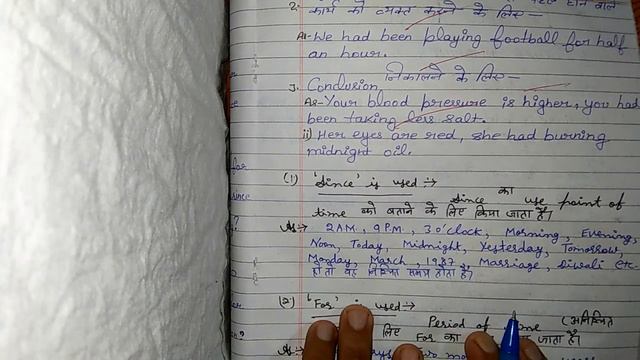 2. कार्य को व्यक्त करने के लिए—
As-We had been playing football for half
an hour.
3. Conclusion निकालने के लिए—
As-Your blood pressure is higher, you had
been taking less salt.
ii) Her eyes are red, she had burning
midnight oil.
(1) 'Since' is used :→
Since का use point of
time को बताने के लिए किया जाता है।
As:→ 2AM, 9PM, 3 o'clock, Morning, Evening,
Noon, Today, Midnight, Yesterday, Tomorrow,
Monday, March, 1987, Marriage, Diwali etc.
हो तो वह निश्चित समय होता है।
(2) 'For' is used:→
Period of time (अनिश्चित
लिए For का जाता है।
As:→
for
since